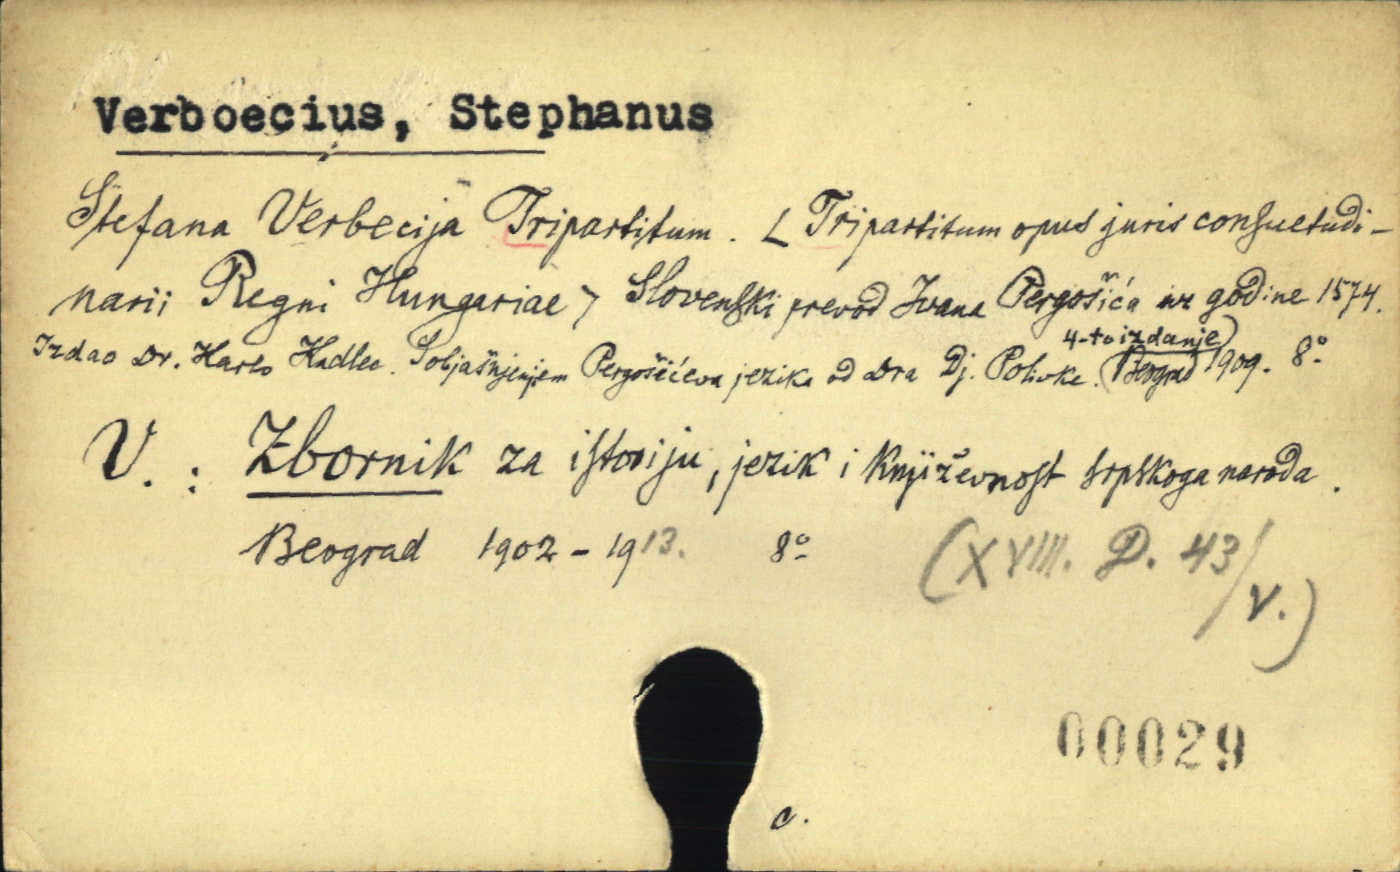 Verboecius, Stephanus
Štefana Verbecija Tripartitum. [Tripartitum opus juris consuetudi-
narii Regni Hungariae] Slovenski prevod Ivana Pergošića iz godine 1574.
4-to izdanje)
Izdao Dr. Karlo Kadlec. S objašnjenjem Pergošićeva jezika od Dra Dj. Polivke. (Beograd 1909. 8°
V. : Zbornik za istoriju, jezik i književnost srpskoga naroda.
Beograd 1902-1913. 8°
(XVIII. D. 43/V.)
00029
c.